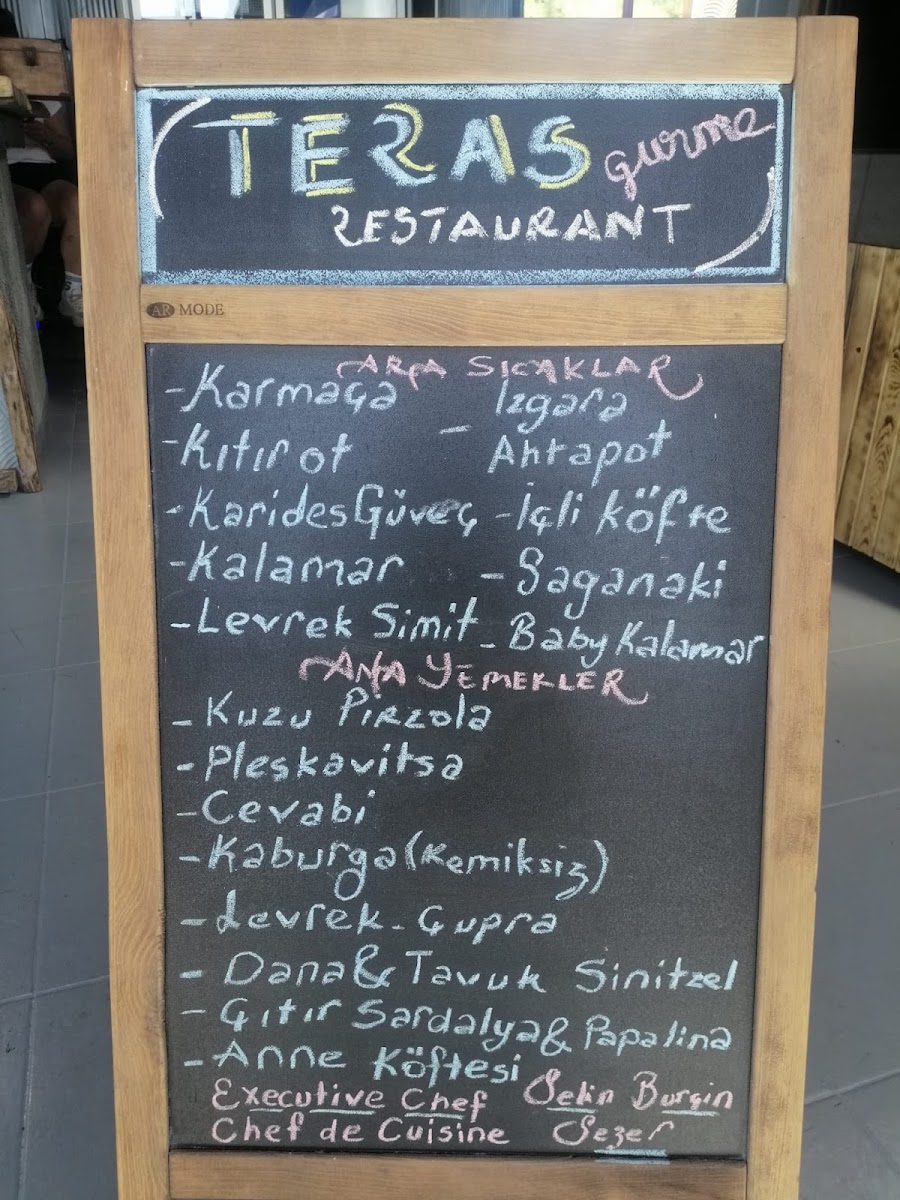 TERAS gurme
RESTAURANT
AR MODE
ARA SICAKLAR
- Karmaça
- Izgara Ahtapot
- Kıtır ot
- Karides Güveç - İçli köfte
- Kalamar - Saganaki
- Levrek Simit - Baby Kalamar
ANA YEMEKLER
- Kuzu Pirzola
- Pleskavitsa
- Cevabi
- Kaburga (Kemiksiz)
- Levrek - Çupra
- Dana & Tavuk Sinitzel
- Çıtır Sardalya & Papalina
- Anne Köftesi
Executive Chef Selin Burgin
Chef de Cuisine Sezer